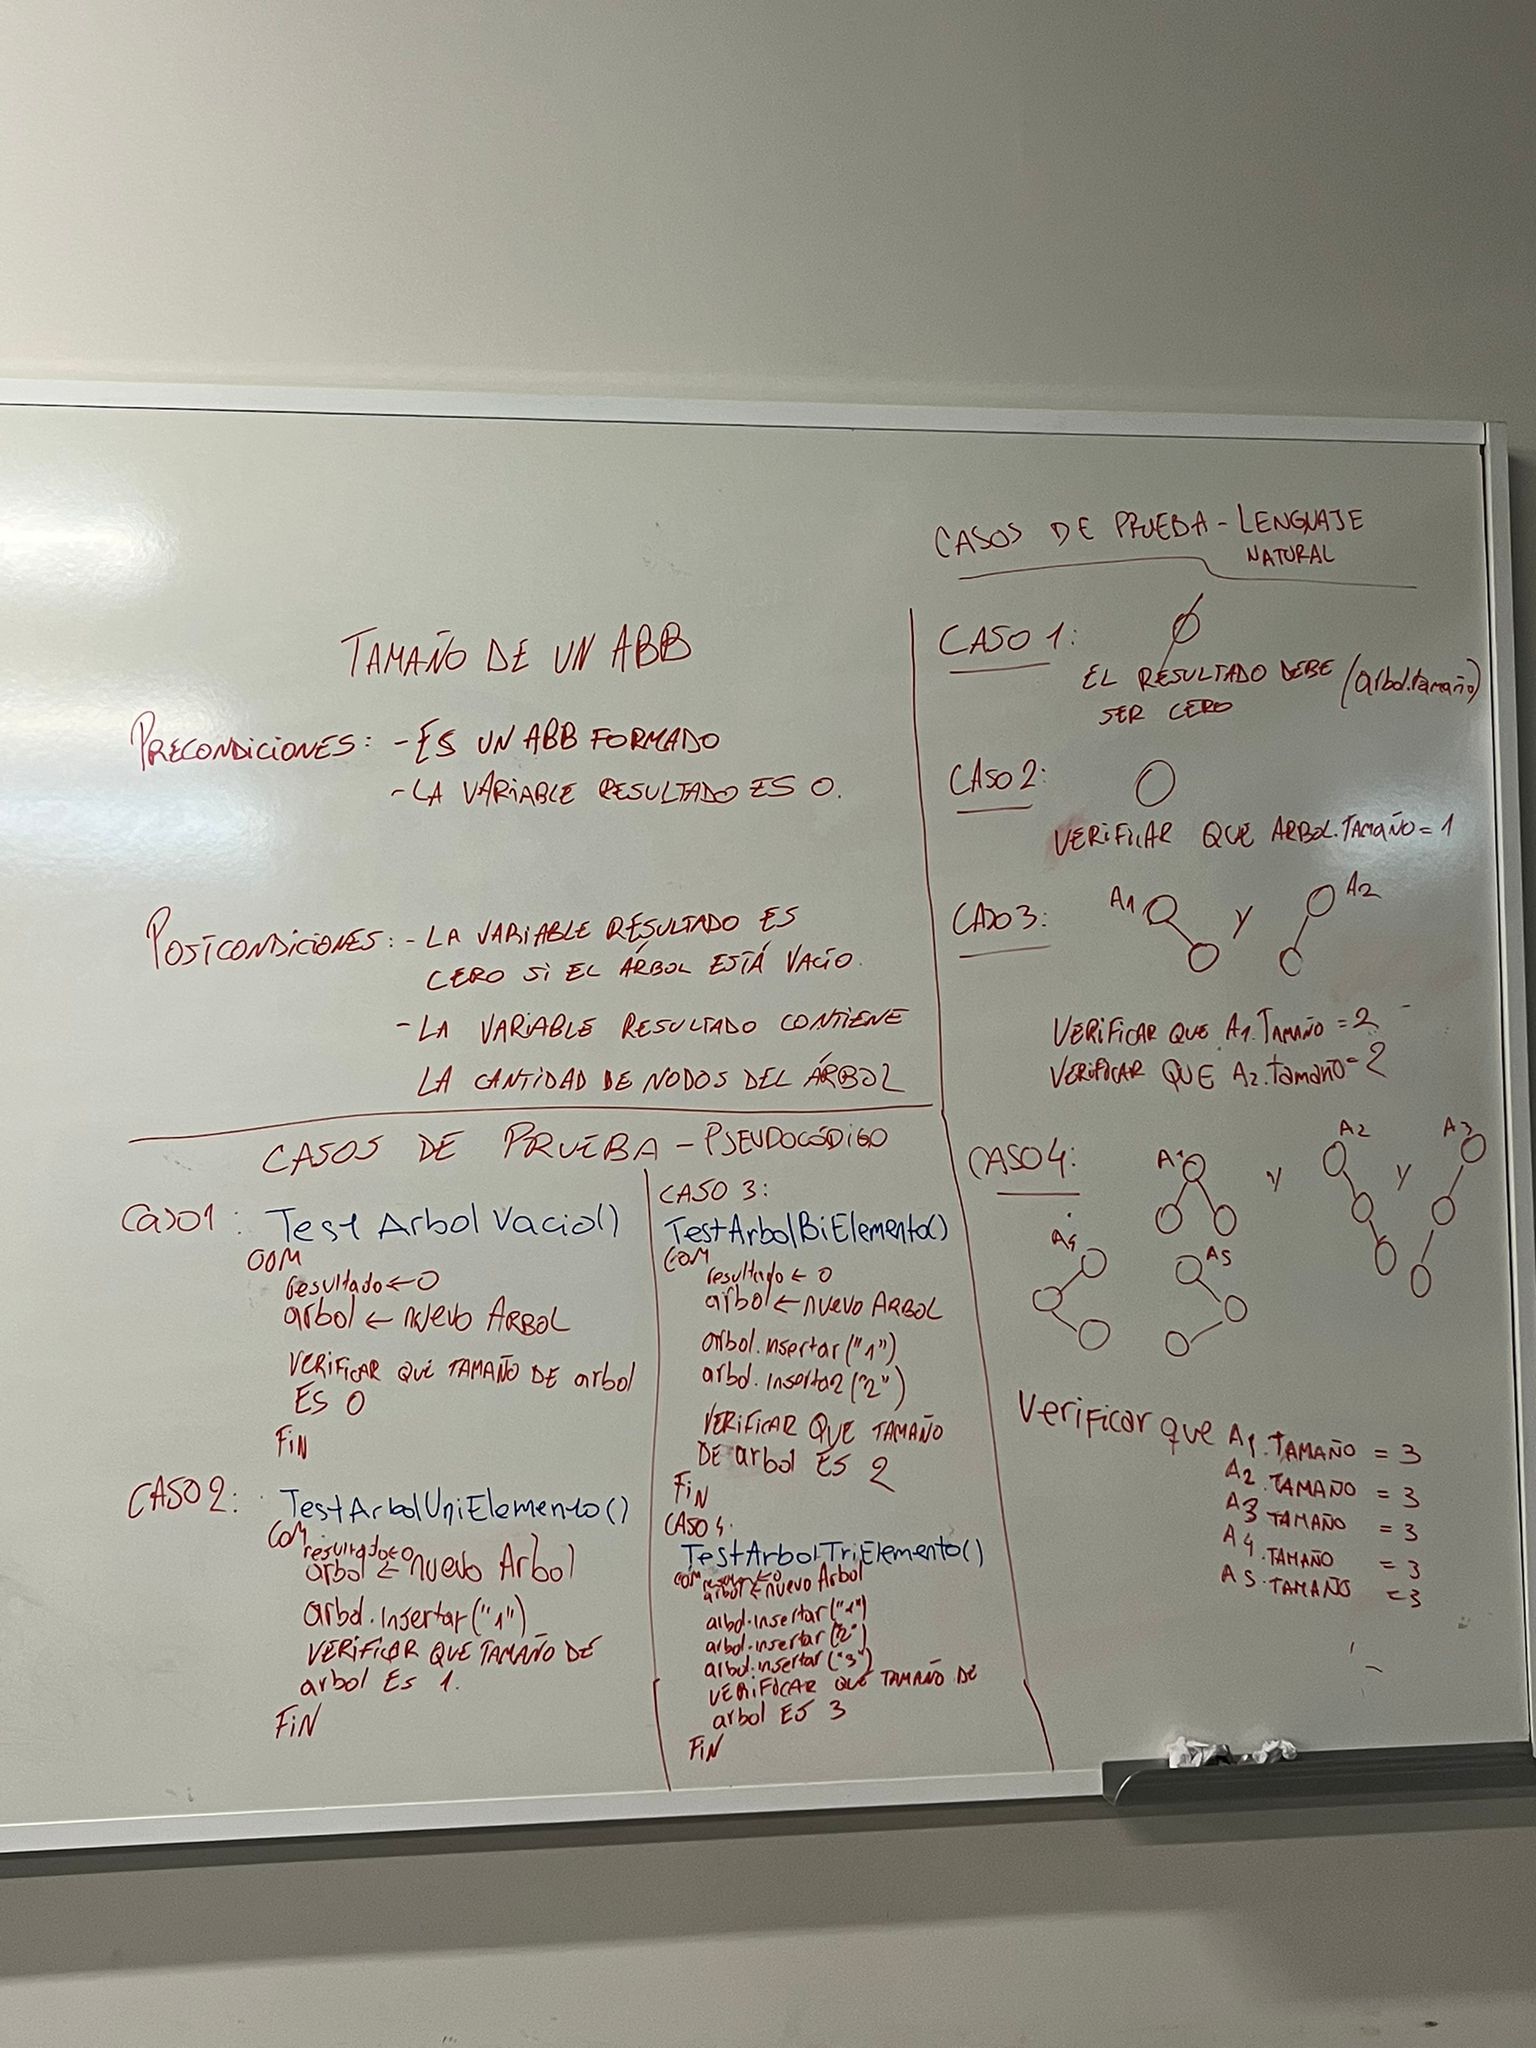 TAMAÑO DE UN ABB
PRECONDICIONES: - ES UN ABB FORMADO
- LA VARIABLE RESULTADO ES 0.
POSTCONDICIONES: - LA VARIABLE RESULTADO ES
CERO SI EL ÁRBOL ESTÁ VACÍO.
- LA VARIABLE RESULTADO CONTIENE
LA CANTIDAD DE NODOS DEL ÁRBOL
CASOS DE PRUEBA - PSEUDOCÓDIGO
CASO 1: TestArbolVacio()
COM
resultado ← 0
arbol ← nuevo ARBOL
VERIFICAR QUE TAMAÑO DE arbol
ES 0
FIN
CASO 2: TestArbolUniElemento()
COM
resultado ← 0
arbol ← nuevo Arbol
arbol.insertar("1")
VERIFICAR QUE TAMAÑO DE
arbol ES 1.
FIN
CASO 3:
TestArbolBiElemento()
COM
resultado ← 0
arbol ← nuevo ARBOL
arbol.insertar("1")
arbol.insertar("2")
VERIFICAR QUE TAMAÑO
DE arbol ES 2
FIN
CASO 4.
TestArbolTriElemento()
COM
arbol ← nuevo Arbol
arbol.insertar("1")
arbol.insertar("2")
arbol.insertar("3")
VERIFICAR QUE TAMAÑO DE
arbol ES 3
FIN
CASOS DE PRUEBA - LENGUAJE
NATURAL
CASO 1: Ø
EL RESULTADO DEBE (arbol.tamaño)
SER CERO
CASO 2:
VERIFICAR QUE ARBOL.TAMAÑO = 1
CASO 3: A1 Y A2
VERIFICAR QUE A1.TAMAÑO = 2
VERIFICAR QUE A2.tamaño = 2
CASO 4: A1 Y A2 Y A3
A4 A5
Verificar que A1.TAMAÑO = 3
A2.TAMAÑO = 3
A3 TAMAÑO = 3
A4.TAMAÑO = 3
A5.TAMAÑO = 3